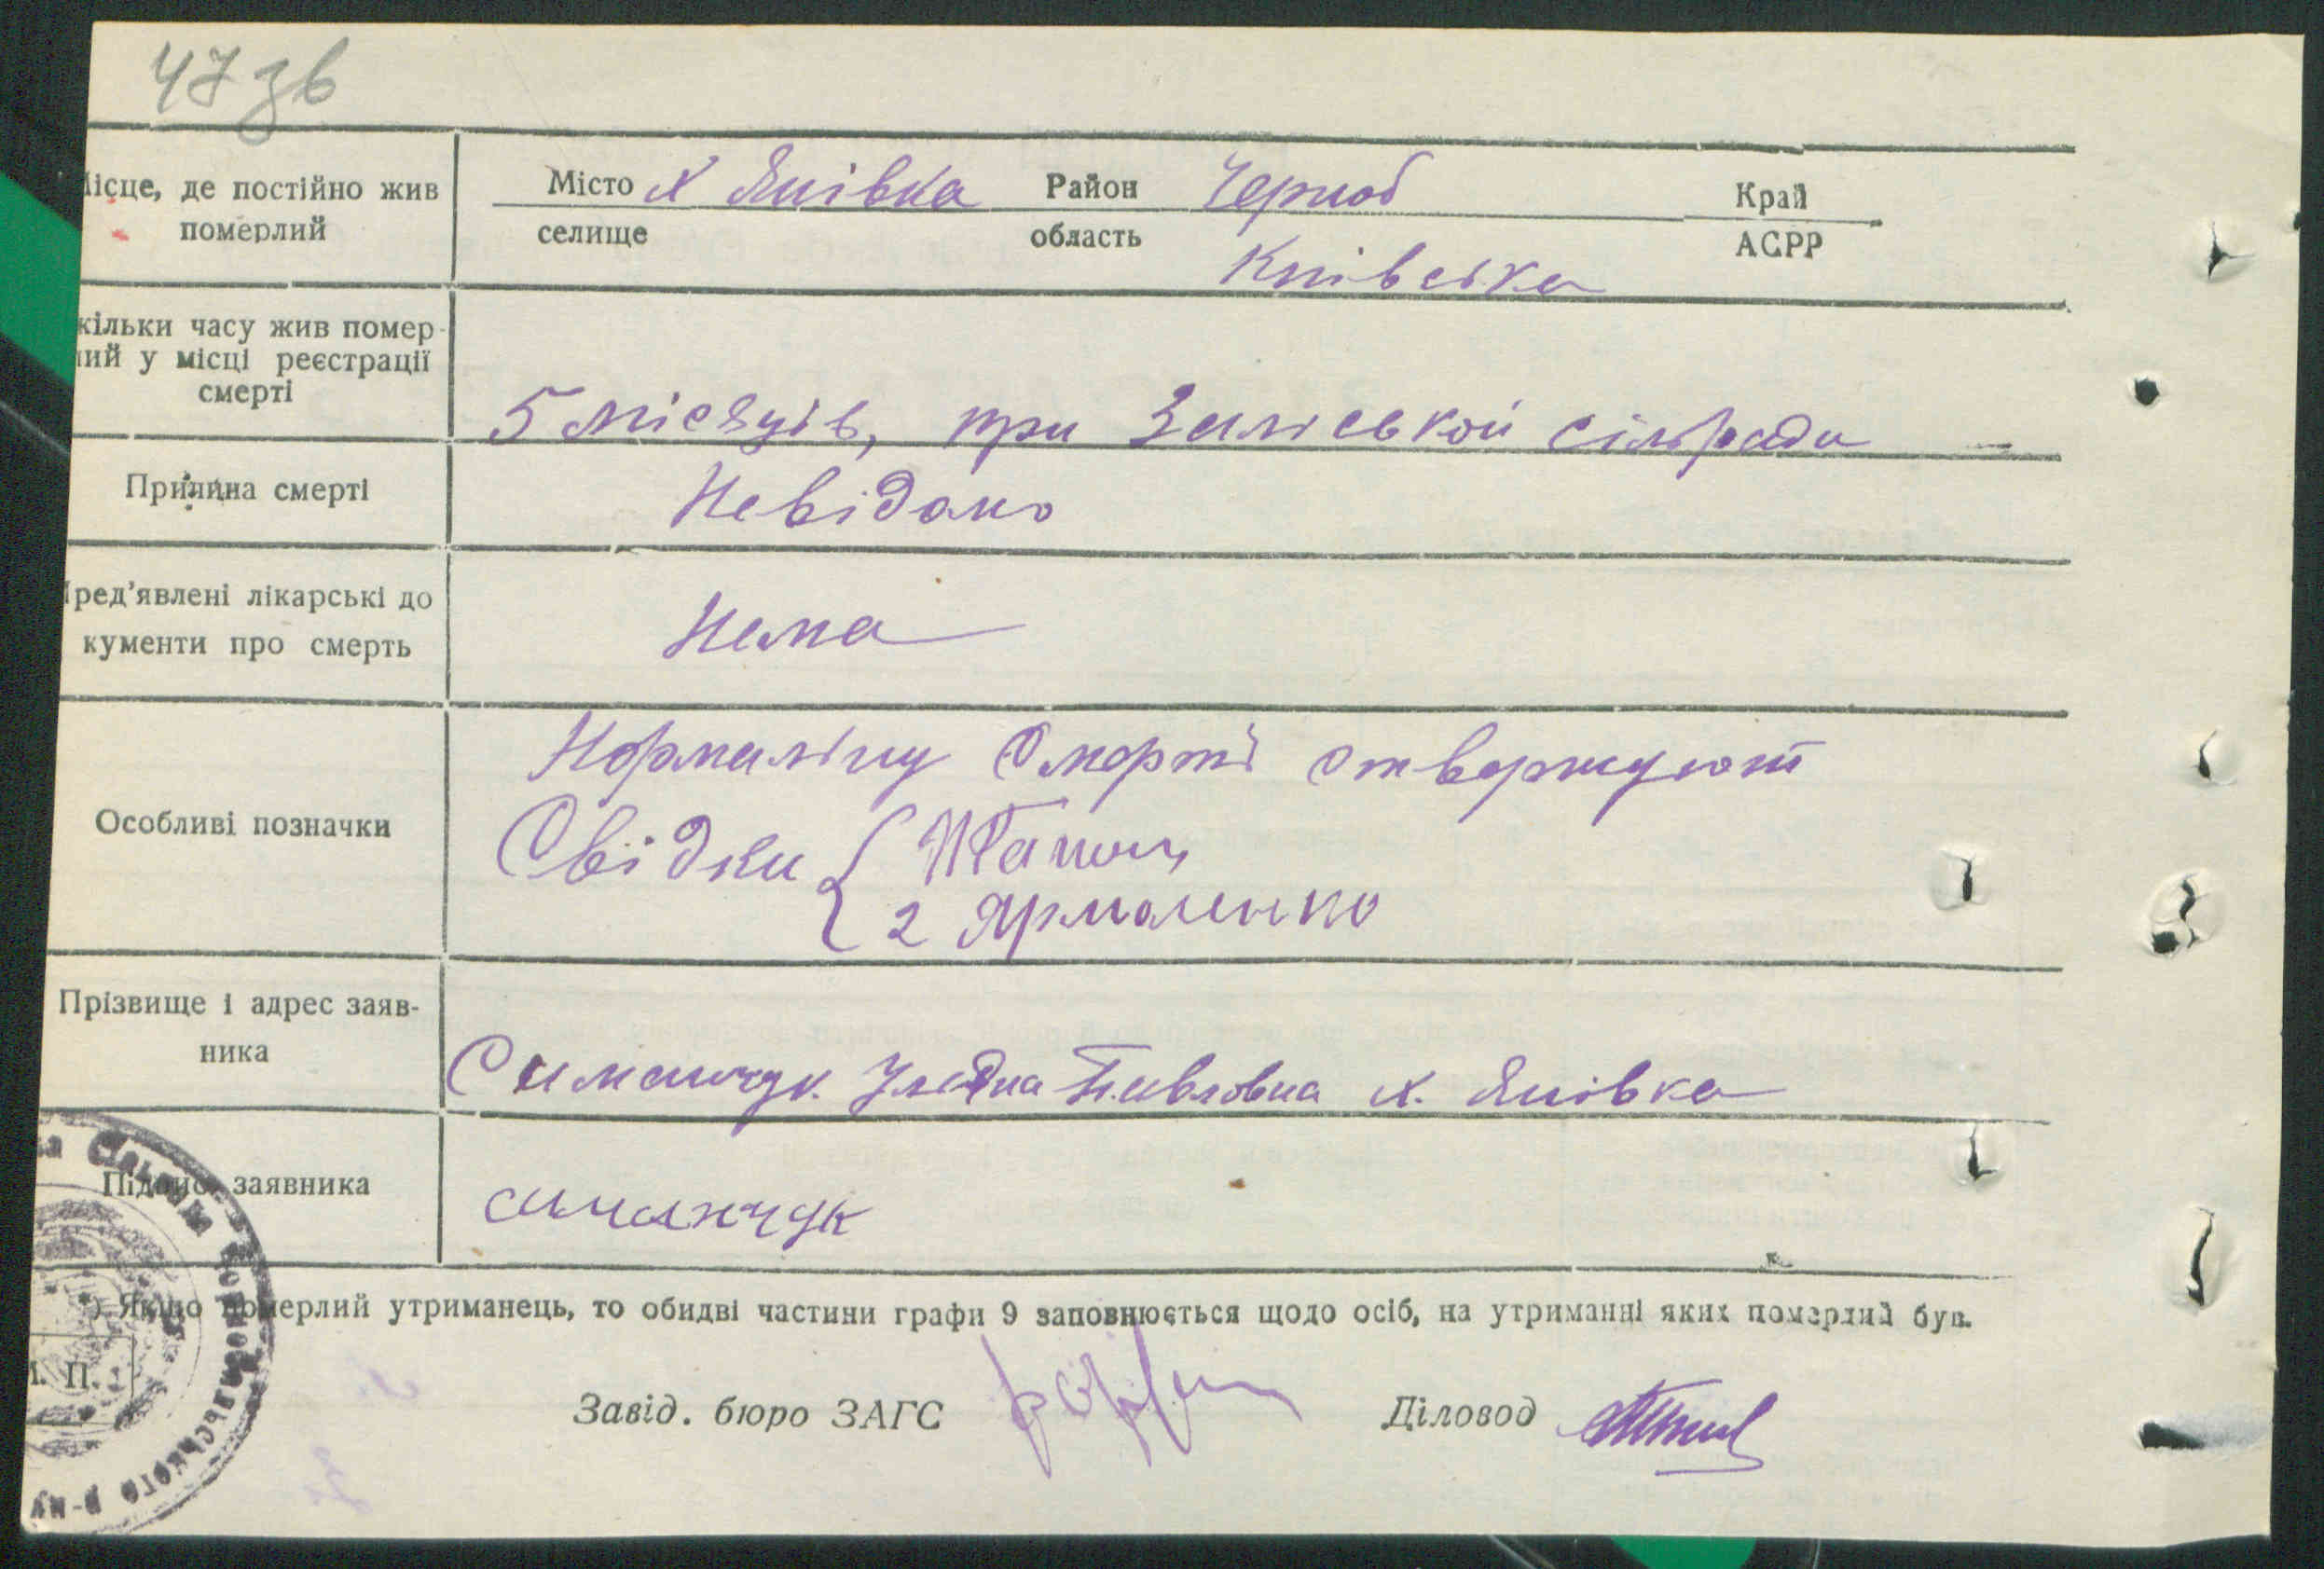 47 зв
Місце, де постійно жив
померлий
Місто х Янівка Район Черноб Край
селище область АСРР
Київська
кільки часу жив помер-
лий у місці реєстрації
смерті
5 місяців, при Заліськой сільради
Причина смерті
Невідомо
Пред'явлені лікарські до
кументи про смерть
Нема
Особливі позначки
Нормальну Смерті стверждуют
Свідки
2 Ярмоленко
Прізвище і адрес заяв-
ника
Симанчук Павловна х. Янівка
Підпис заявника
симанчук
*) Якщо померлий утриманець, то обидві частини графи 9 заповнюється щодо осіб, на утриманні яких померлий був.
М. П.
Завід. бюро ЗАГС Діловод